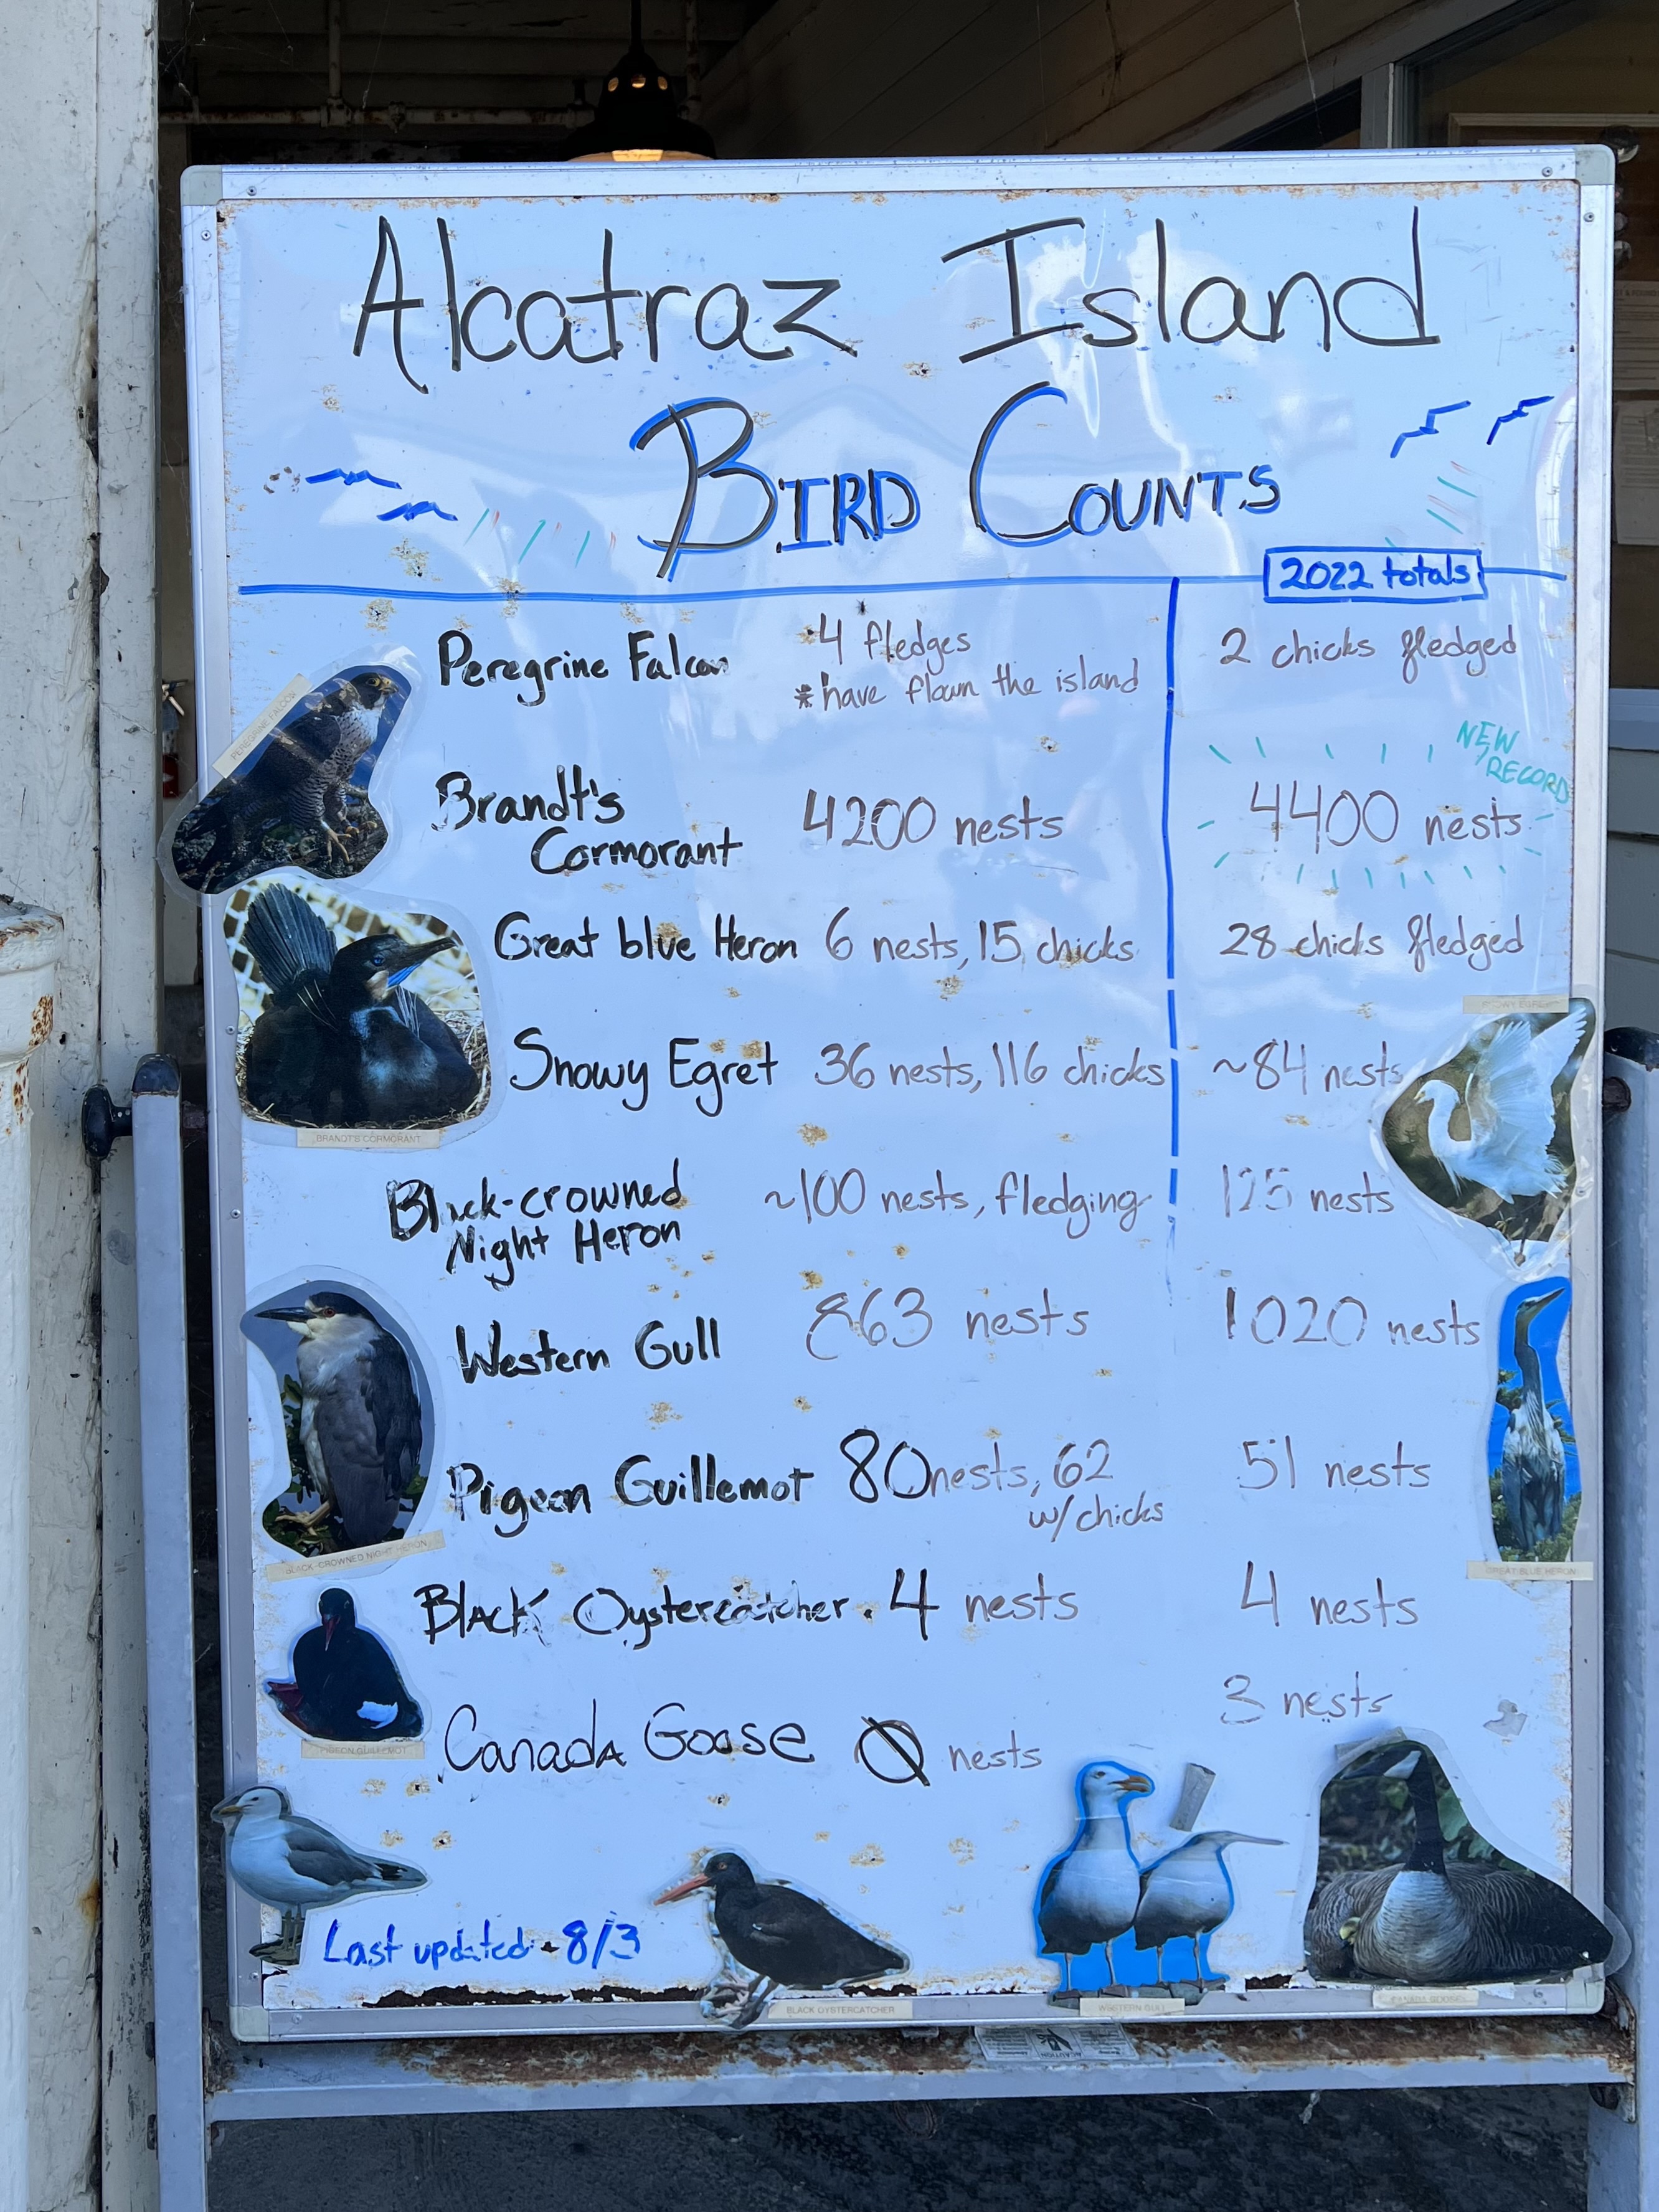 Alcatraz Island
BIRD COUNTS
2022 totals
Peregrine Falcon 4 fledges 2 chicks fledged
* have flown the island
NEW RECORD
Brandt's Cormorant 4200 nests 4400 nests
Great blue Heron 6 nests, 15 chicks 28 chicks fledged
Snowy Egret 36 nests, 116 chicks ~84 nests
Black-crowned Night Heron ~100 nests, fledging 125 nests
Western Gull 863 nests 1020 nests
Pigeon Guillemot 80 nests, 62 w/chicks 51 nests
BLACK Oystercatcher 4 nests 4 nests
3 nests
CANADA GOOSE 0 nests
Last updated - 8/3
PEREGRINE FALCON
BRANDT'S CORMORANT
SNOWY EGRET
BLACK-CROWNED NIGHT HERON
GREAT BLUE HERON
PIGEON GUILLEMOT
BLACK OYSTERCATCHER
WESTERN GULL